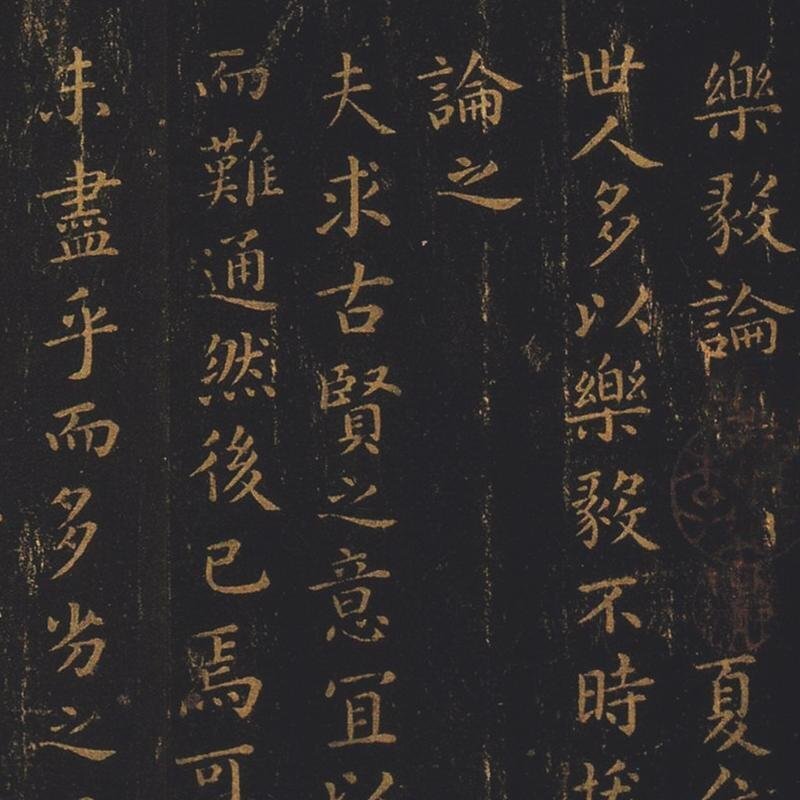 樂毅論 夏
世人多以樂毅不時拔
論之
夫求古賢之意宜以
而難通然後已焉可
未盡乎而多劣之